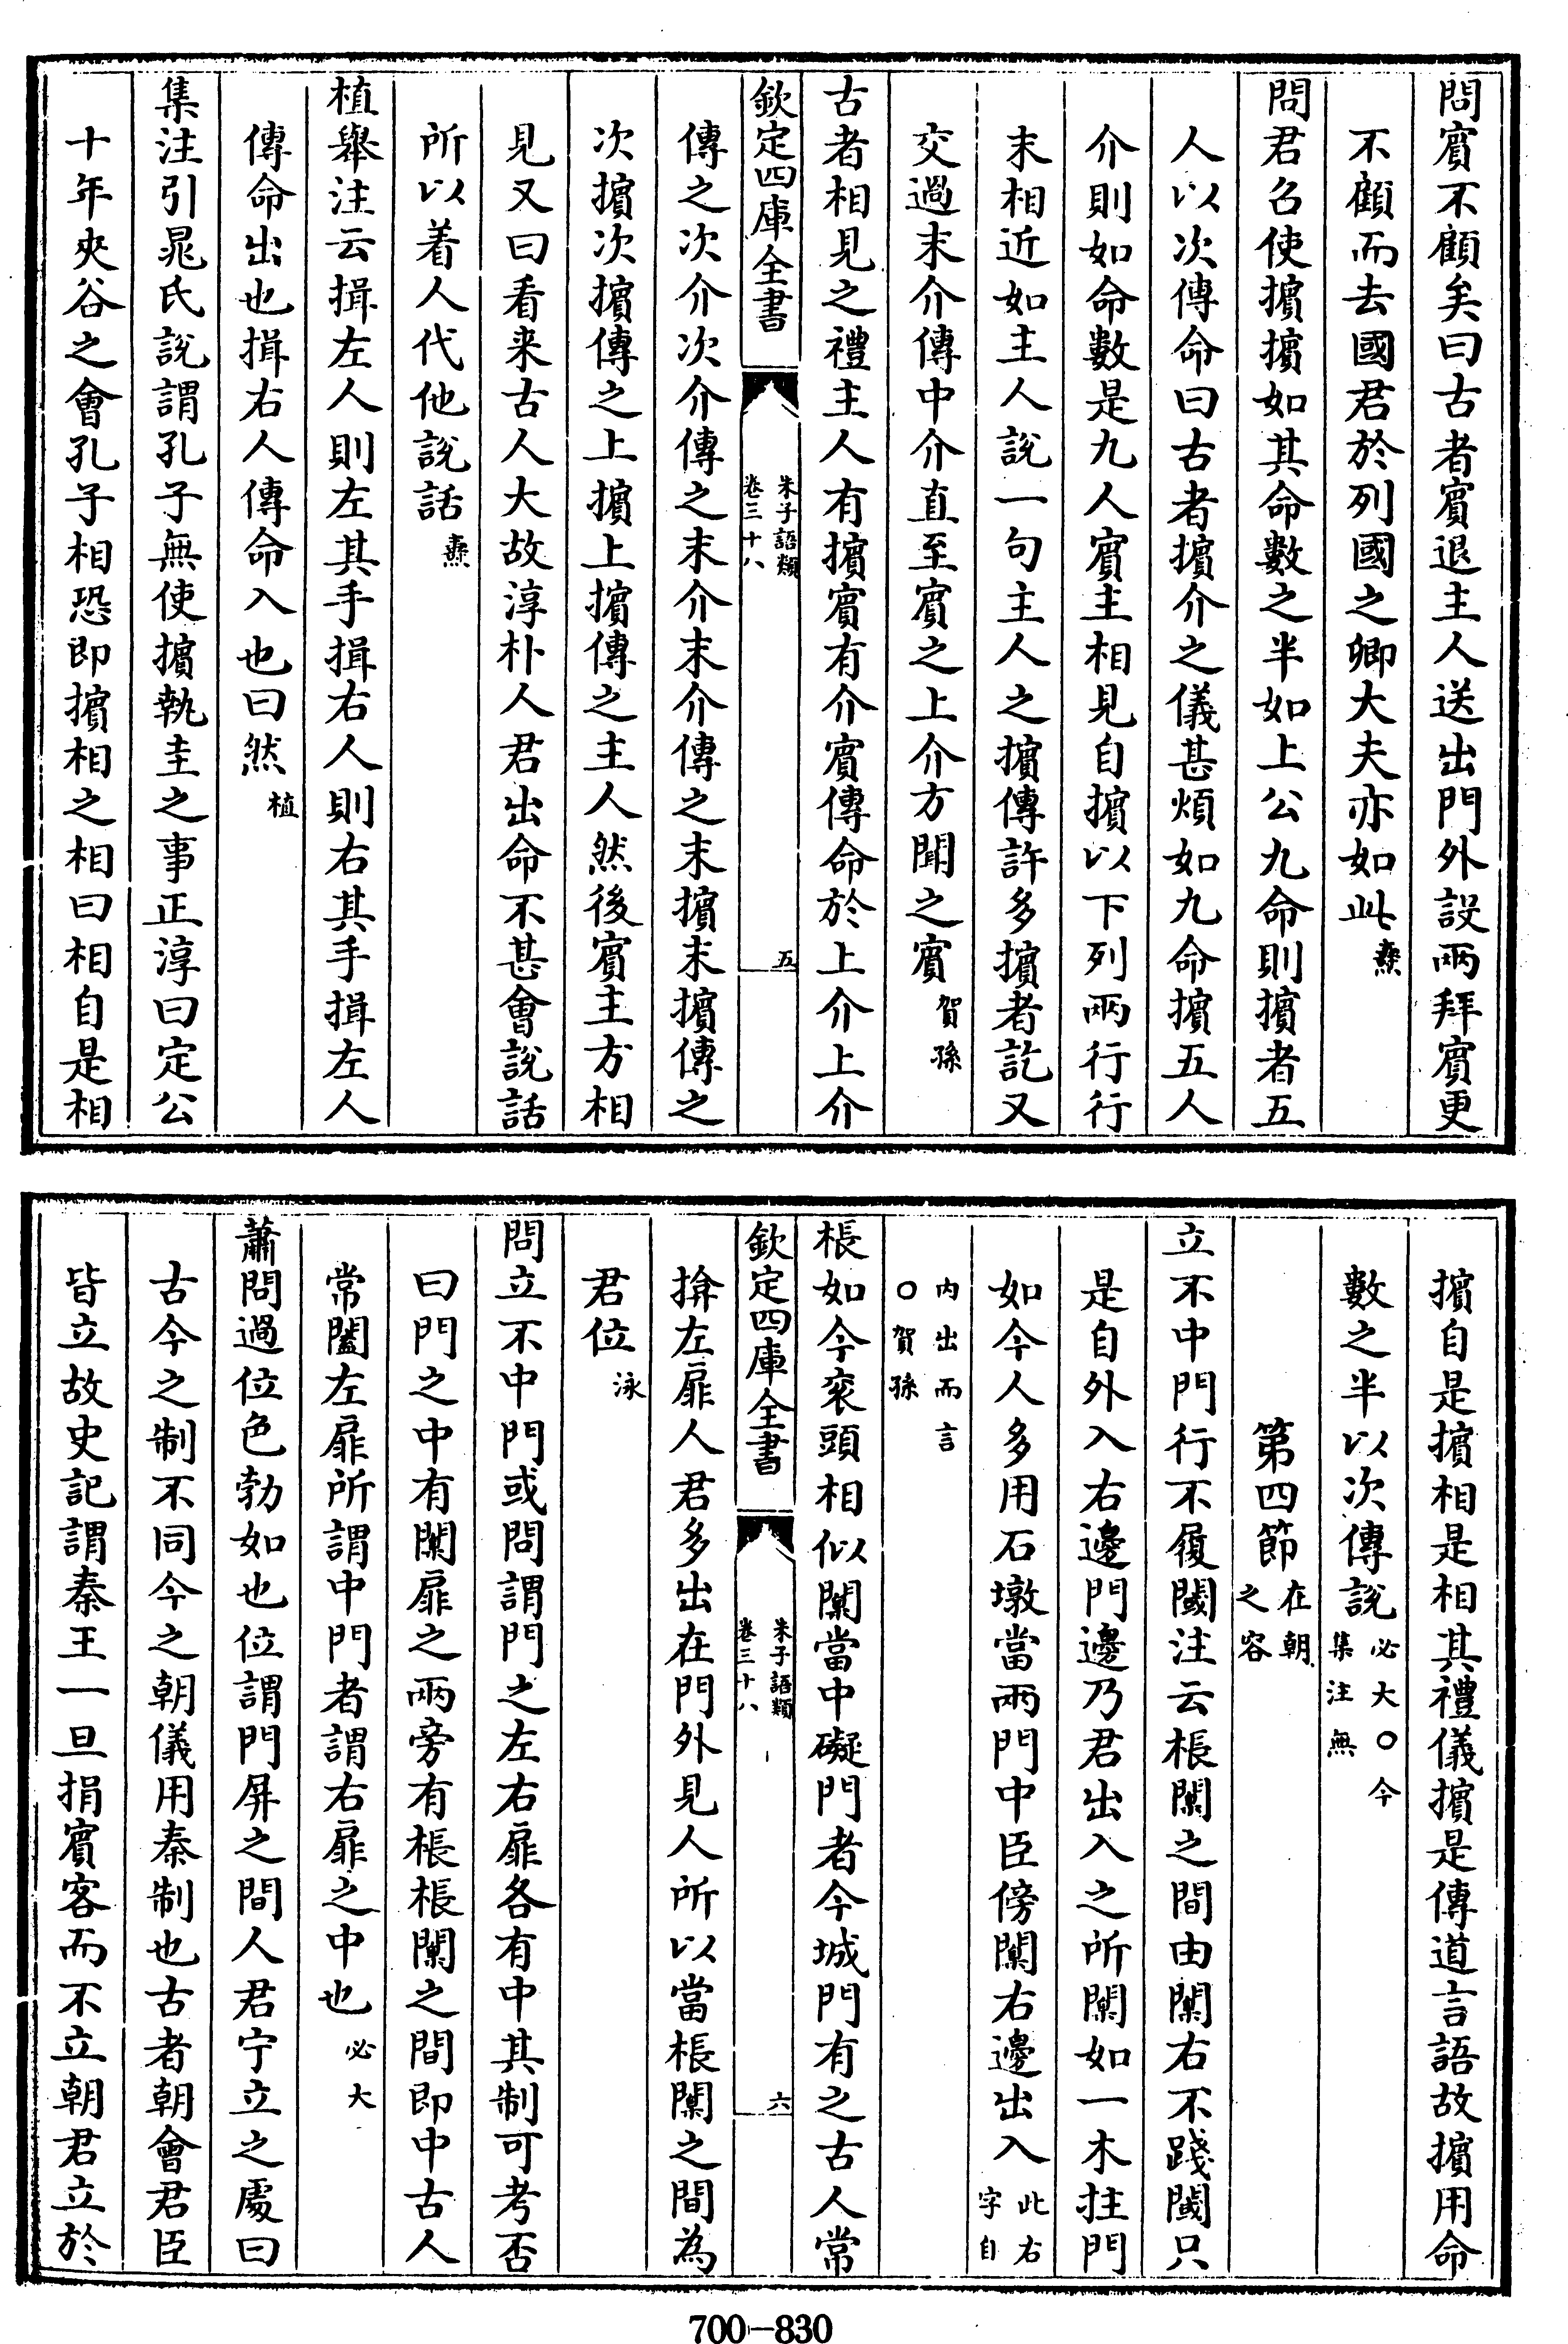 問賔不顧矣曰古者賔退主人送出門外設兩拜賔更
不顧而去國君於列國之卿大夫亦如此燾
問君召使擯擯如其命數之半如上公九命則擯者五
人以次傳命曰古者擯介之儀甚煩如九命擯五人
介則如命數是九人賔主相見自擯以下列兩行行
末相近如主人說一句主人之擯傳許多擯者訖又
交過末介傳中介直至賔之上介方聞之賔賀孫
古者相見之禮主人有擯賔有介賔傳命於上介上介
欽定四庫全書 朱子語類卷三十八 五
傳之次介次介傳之末介末介傳之末擯末擯傳之
次擯次擯傳之上擯上擯傳之主人然後賔主方相
見又曰看来古人大故淳朴人君出命不甚會說話
所以着人代他說話燾
植舉注云揖左人則左其手揖右人則右其手揖左人
傳命出也揖右人傳命入也曰然植
集注引晁氏說謂孔子無使擯執圭之事正淳曰定公
十年夾谷之會孔子相恐即擯相之相曰相自是相
擯自是擯相是相其禮儀擯是傳道言語故擯用命
數之半以次傳說必大○今集注無
第四節在朝之容
立不中門行不履閾注云棖闑之間由闑右不踐閾只
是自外入右邊門邊乃君出入之所闑如一木拄門
如今人多用石墩當兩門中臣傍闑右邊出入此右字自
内出而言○賀孫
棖如今衮頭相似闑當中礙門者今城門有之古人常
欽定四庫全書 朱子語類卷三十八 六
揜左扉人君多出在門外見人所以當棖闑之間為
君位泳
問立不中門或問謂門之左右扉各有中其制可考否
曰門之中有闑扉之兩旁有棖棖闑之間即中古人
常闔左扉所謂中門者謂右扉之中也必大
蕭問過位色勃如也位謂門屏之間人君宁立之處曰
古今之制不同今之朝儀用秦制也古者朝會君臣
皆立故史記謂秦王一旦捐賔客而不立朝君立於
700-830